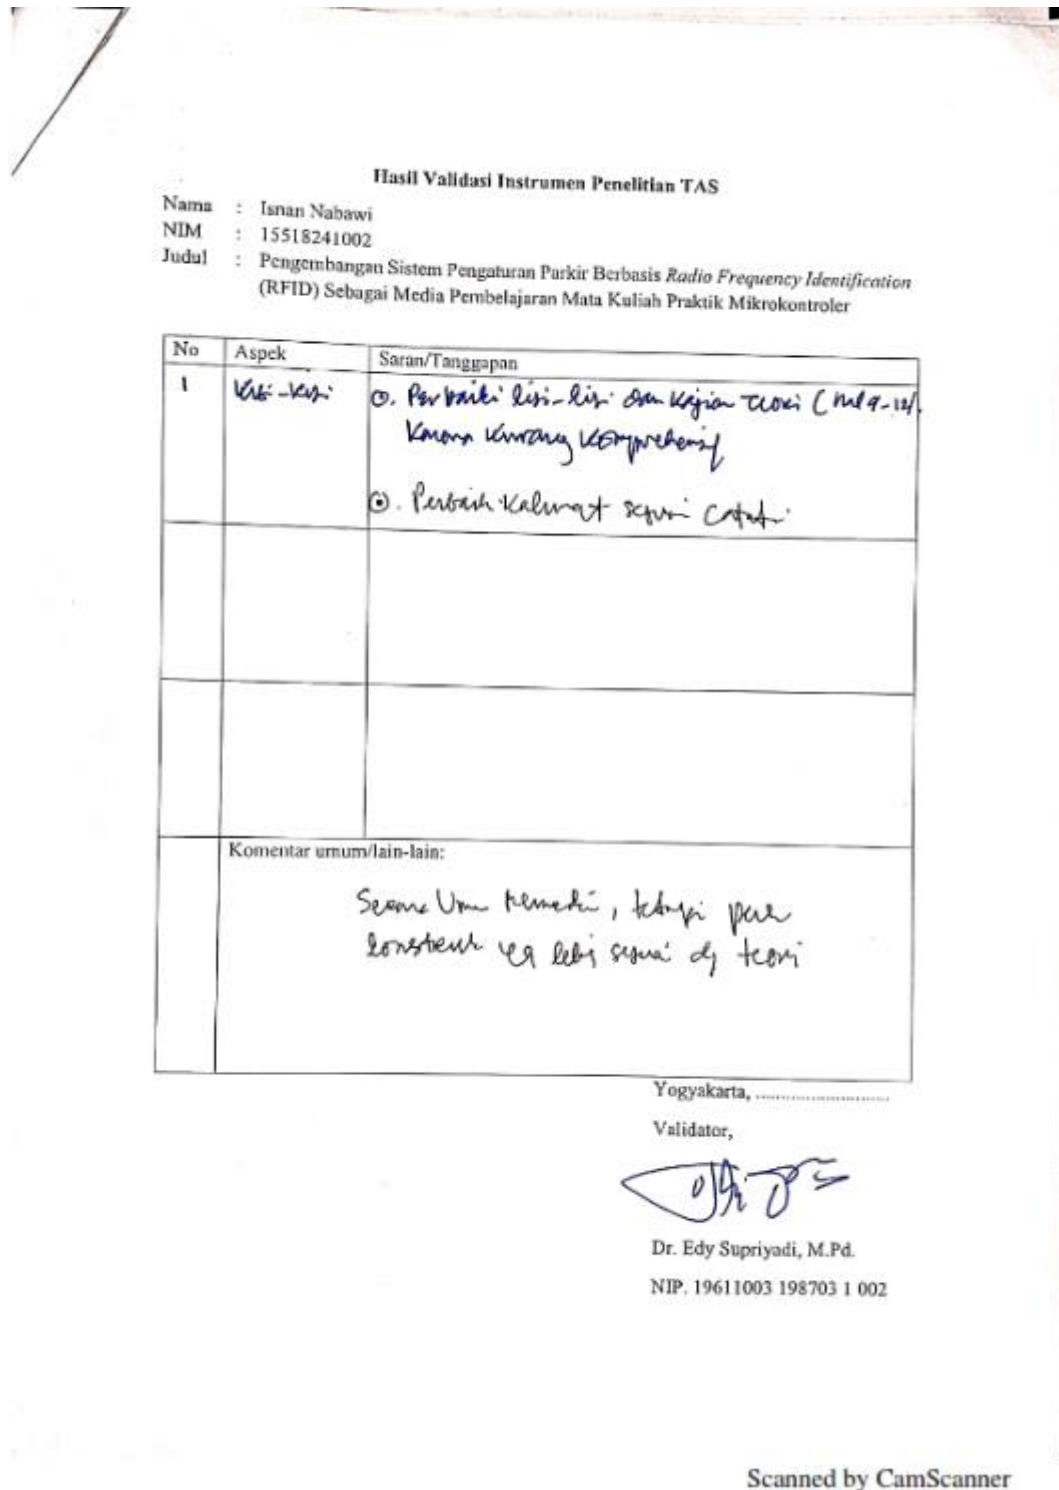 Hasil Validasi Instrumen Penelitian TAS
Nama : Isnan Nabawi
NIM : 15518241002
Judul : Pengembangan Sistem Pengaturan Parkir Berbasis Radio Frequency Identification
(RFID) Sebagai Media Pembelajaran Mata Kuliah Praktik Mikrokontroler
No Aspek Saran/Tanggapan
1 Kisi-kisi ⊙. Perbaiki kisi-kisi dan kajian teori ( hal 9-12).
Karena kurang komprehensif
⊙. Perbaiki kalimat sesuai
Komentar umum/lain-lain:
Secara umum memadai, tetapi
konstruk yg lebih sesuai dg teori
Yogyakarta, ............................
Validator,
Dr. Edy Supriyadi, M.Pd.
NIP. 19611003 198703 1 002
Scanned by CamScanner